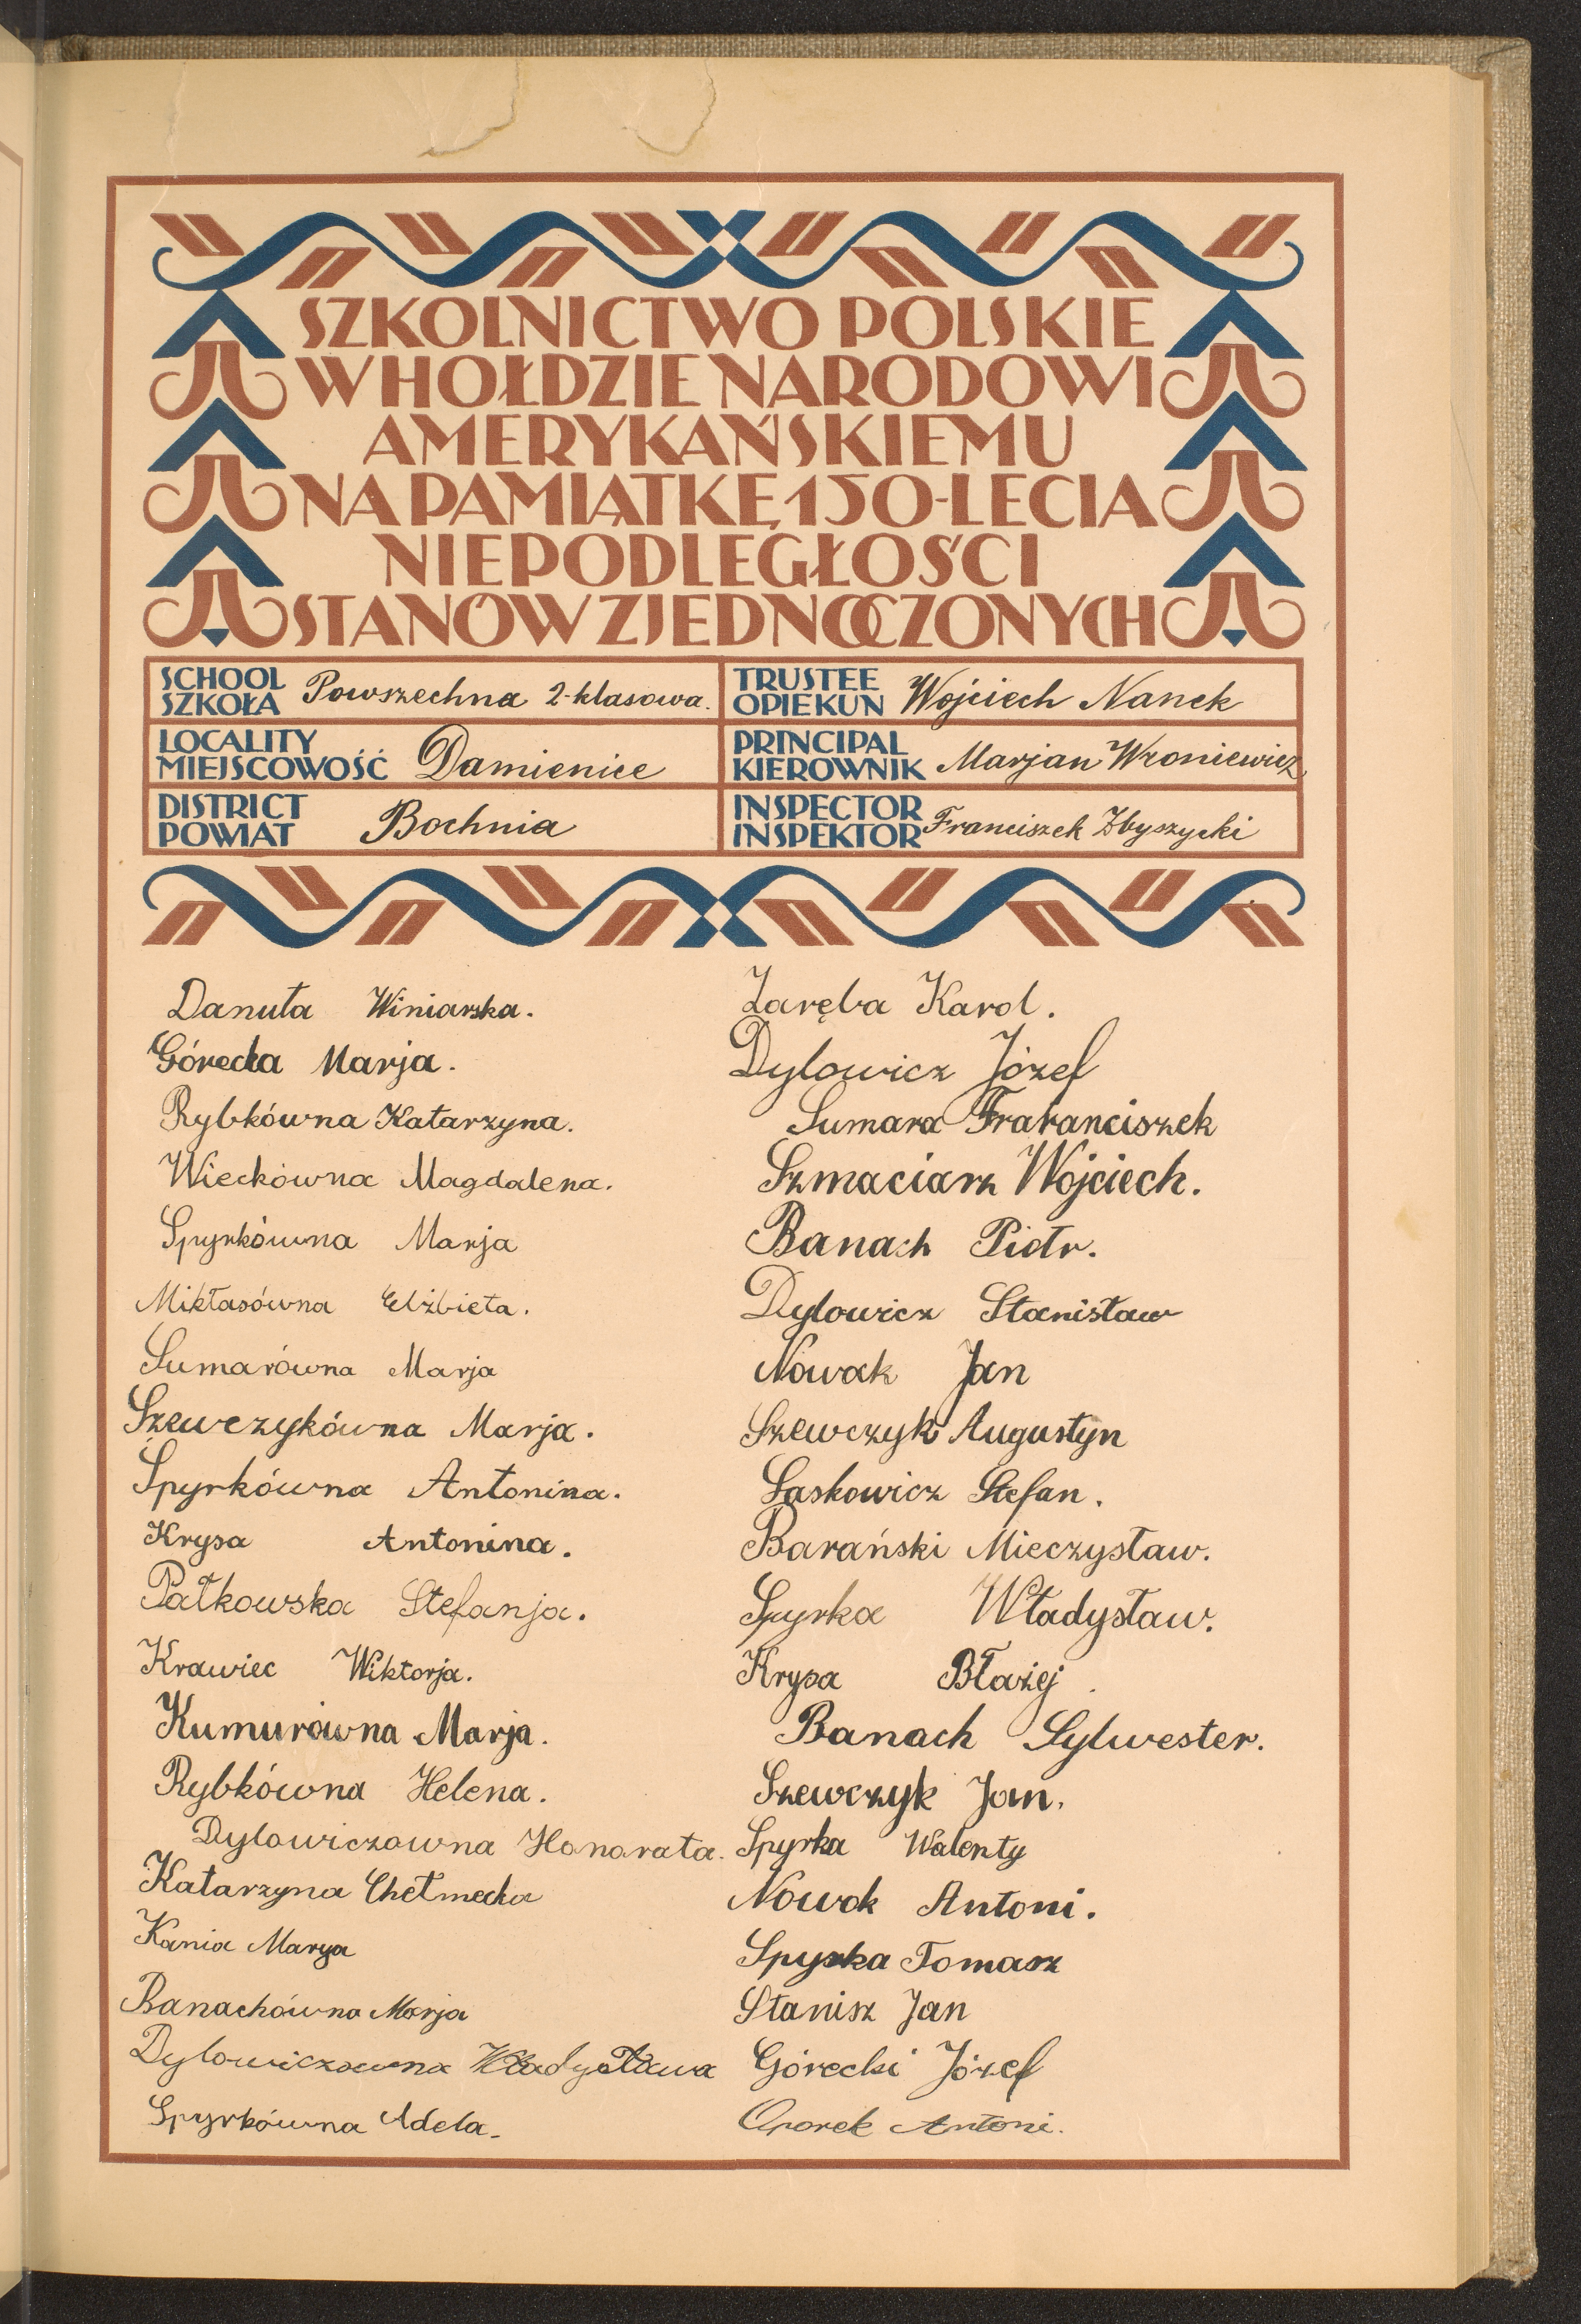 SZKOLNICTWO POLSKIE
W HOŁDZIE NARODOWI
AMERYKAŃSKIEMU
NA PAMIĄTKĘ 150-LECIA
NIEPODLEGŁOŚCI
STANÓW ZJEDNOCZONYCH
SCHOOL
SZKOŁA Powszechna 2-klasowa.
TRUSTEE
OPIEKUN Wojciech Nanek
LOCALITY
MIEJSCOWOŚĆ Damienice
PRINCIPAL
KIEROWNIK Marjan Wroniewicz
DISTRICT
POWIAT Bochnia
INSPECTOR
INSPEKTOR Franciszek Zbyszycki
Danuta Winiarska.
Górecka Marja.
Rybkówna Katarzyna.
Wieckówna Magdalena.
Spyrkówna Marja
Mikłasówna Elżbieta.
Sumarówna Marja
Szewczykówna Marja.
Spyrkówna Antonina.
Krysa Antonina.
Pałkowska Stefanja.
Krawiec Wiktorja.
Kumurówna Marja.
Rybkówna Helena.
Dylowiczowna Honorata.
Katarzyna Chełmecka
Kania Marya
Banachówna Marja
Dylowiczowna Władysława
Spyrkówna Adela.
Zaręba Karol.
Dylowicz Józef
Sumara Frafranciszek
Szmaciarz Wojciech.
Banach Piotr.
Dylowicz Stanisław
Nowak Jan
Szewczyk Augustyn
Laskowicz Stefan.
Barański Mieczysław.
Spyrka Władysław.
Krysa Błażej.
Banach Sylwester.
Szewczyk Jan.
Spyrka Walenty
Nowak Antoni.
Spyrka Tomasz
Stanisz Jan
Górecki Józef
Oporek Antoni.